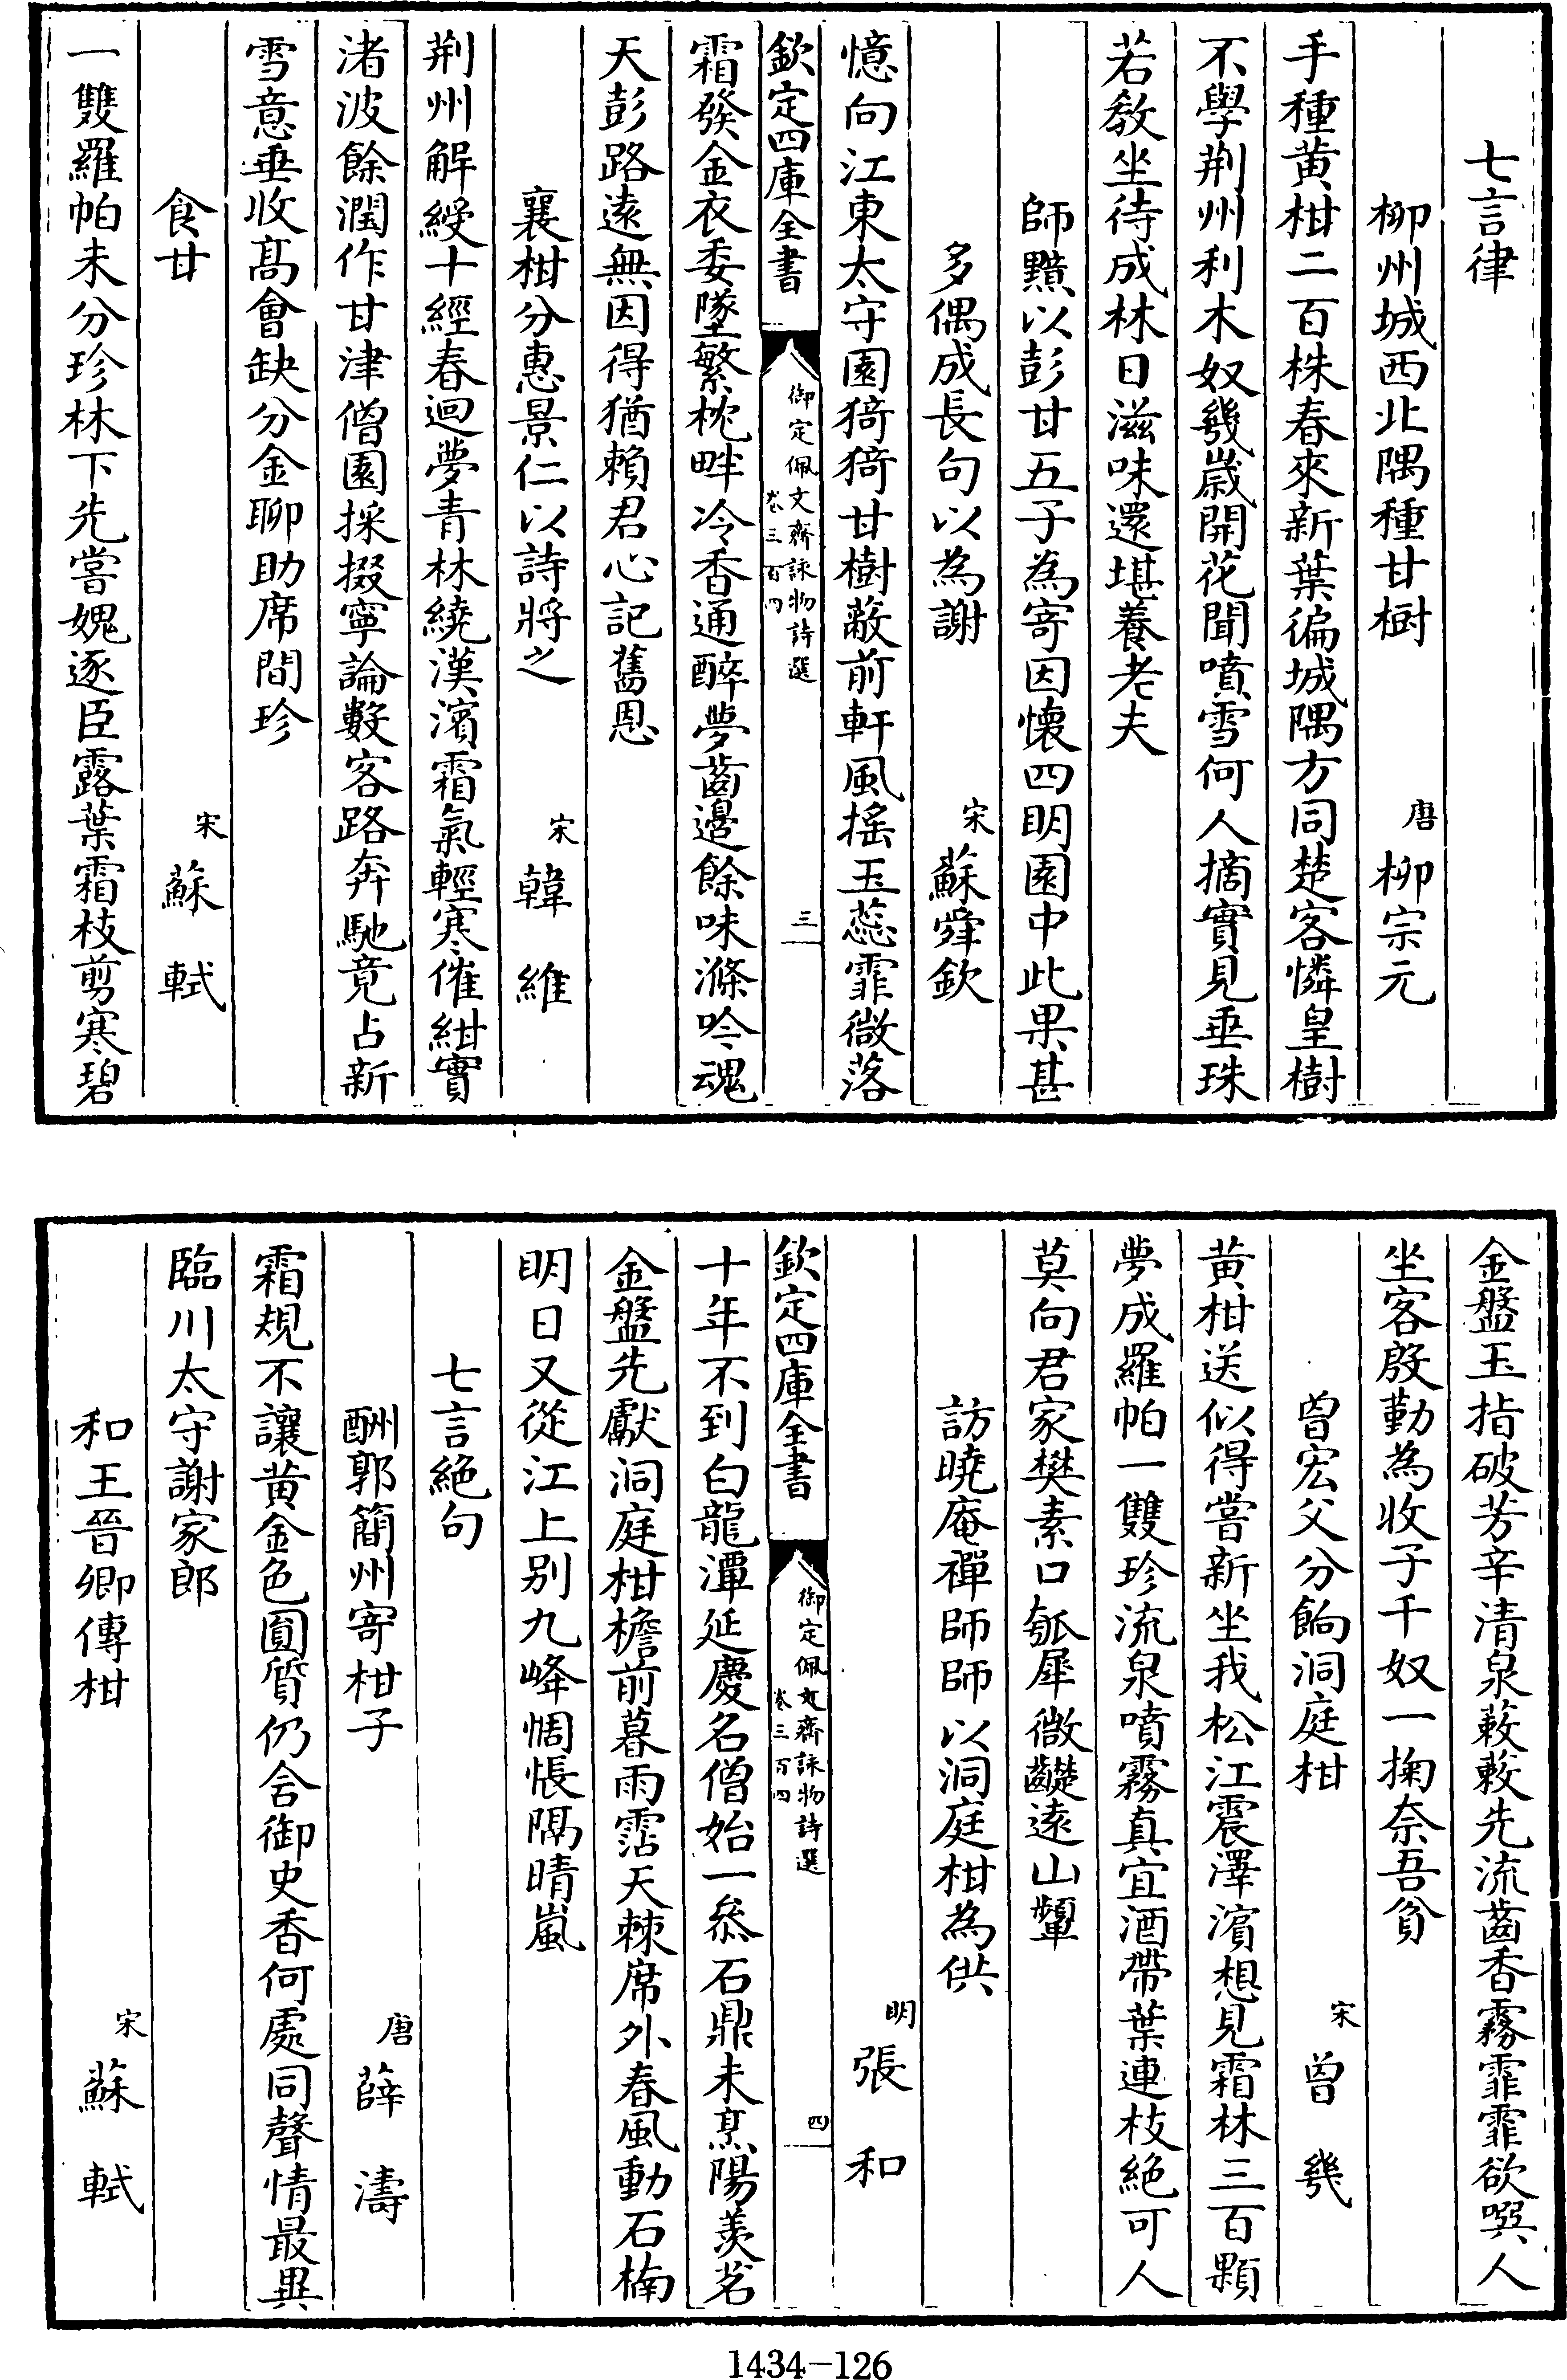 七言律
柳州城西北隅種甘樹
唐柳宗元
手種黄柑二百株春來新葉徧城隅方同楚客憐皇樹
不學荆州利木奴幾嵗開花聞噴雪何人摘實見垂珠
若教坐待成林日滋味還堪養老夫
師黯以彭甘五子為寄因懷四明園中此果甚
多偶成長句以為謝
宋蘇舜欽
憶向江東太守園猗猗甘樹蔽前軒風摇玉蕊霏微落
欽定四庫全書
御定佩文齋詠物詩選
卷三百四
三
霜發金衣委墜繁枕畔冷香通醉夢齒邊餘味滌吟魂
天彭路遠無因得猶賴君心記舊恩
襄柑分惠景仁以詩將之
宋韓維
荆州解綬十經春迴夢青林繞漢濱霜氣輕寒催紺實
渚波餘潤作甘津僧園採掇寧論數客路奔馳竟占新
雪意垂收髙會缺分金聊助席間珍
食甘
宋蘇軾
一雙羅帕未分珍林下先嘗媿逐臣露葉霜枝剪寒碧
金盤玉指破芳辛清泉蔌蔌先流齒香霧霏霏欲噀人
坐客殷勤為收子千奴一掬奈吾貧
曽宏父分餉洞庭柑
宋曽幾
黄柑送似得嘗新坐我松江震澤濱想見霜林三百顆
夢成羅帕一雙珍流泉噴霧真宜酒帶葉連枝絶可人
莫向君家樊素口瓠犀微齼遠山顰
訪曉庵禪師師以洞庭柑為供
明張和
欽定四庫全書
御定佩文齋詠物詩選
卷三百四
四
十年不到白龍潭延慶名僧始一叅石鼎未烹陽羡茗
金盤先獻洞庭柑檐前暮雨霑天棘席外春風動石楠
明日又從江上别九峰惆悵隔晴嵐
七言絶句
酬郭簡州寄柑子
唐薛濤
霜規不讓黄金色圓質仍含御史香何處同聲情最異
臨川太守謝家郎
和王晉卿傳柑
宋蘇軾
1434-126